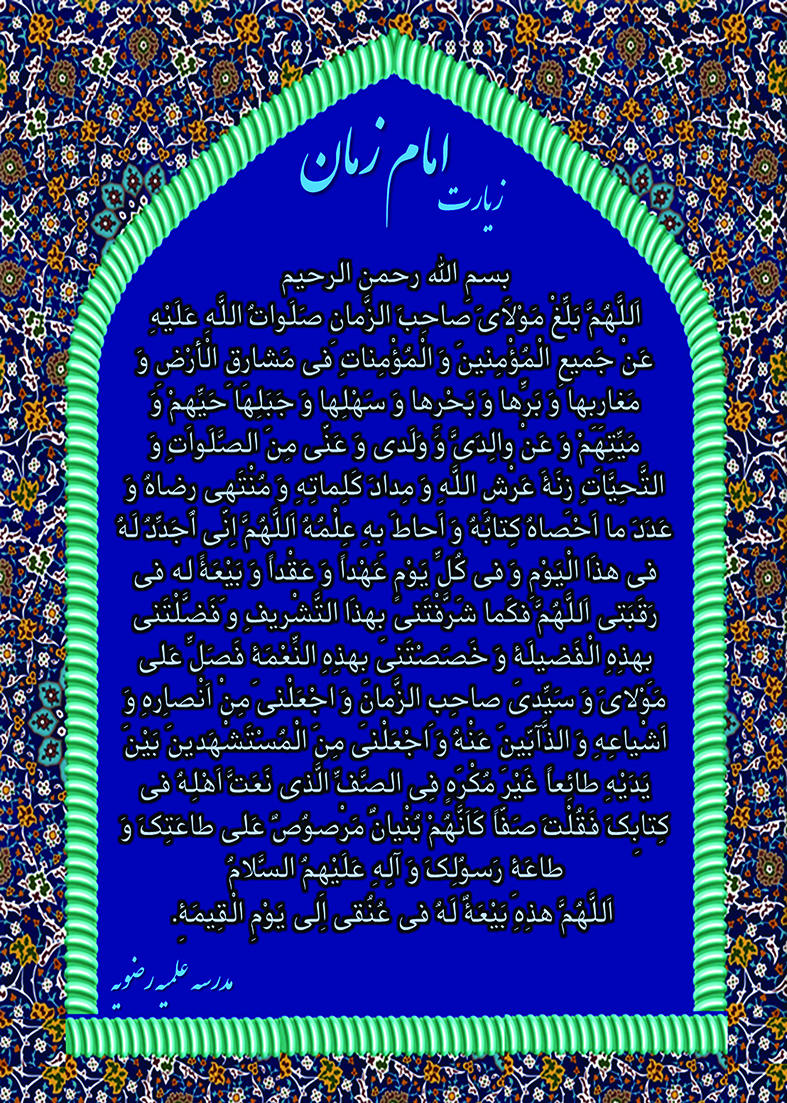 زیارت امام زمان
بسمِ الله رحمن الرحیم
اَللَّهُمَّ بَلِّغْ مَوْلاَیَ صاحِبَ الزَّمانِ صَلَواتُ اللَّهِ عَلَیْهِ
عَنْ جَمیعِ الْمُؤْمِنینَ وَ الْمُؤْمِناتِ فی مَشارِقِ الْأَرْضِ وَ
مَغارِبِها وَ بَرِّها وَ بَحْرِها وَ سَهْلِها وَ جَبَلِها حَیِّهِمْ وَ
مَیِّتِهِمْ وَ عَنْ والِدَیَّ وَ وَلَدی وَ عَنّی مِنَ الصَّلَواتِ وَ
التَّحِیَّاتِ زِنَةَ عَرْشِ اللَّهِ وَ مِدادَ کَلِماتِهِ وَ مُنْتَهی رِضاهُ وَ
عَدَدَ ما اَحْصاهُ کِتابُهُ وَ اَحاطَ بِهِ عِلْمُهُ اَللَّهُمَّ اِنّی اُجَدِّدُ لَهُ
فی هذَا الْیَوْمِ وَ فی کُلِّ یَوْمٍ عَهْداً وَ عَقْداً وَ بَیْعَةً له فی
رَقَبَتی اَللَّهُمَّ فکَما شَرَّفْتَنی بِهذَا التَّشْریفِ و فَضَّلْتَنی
بِهذِهِ الْفَضیلَةِ وَ خَصَصْتَنی بِهذِهِ النِّعْمَةِ فَصَلِّ عَلی
مَوْلایَ وَ سَیِّدی صاحِبِ الزَّمانِ وَ اجْعَلْنی مِنْ اَنْصارِهِ وَ
اَشْیاعِهِ وَ الذَّآبّینَ عَنْهُ وَ اجْعَلْنی مِنَ الْمُسْتَشْهَدینَ بَیْنَ
یَدَیْهِ طائِعاً غَیْرَ مُکْرَهٍ فِی الصَّفِّ الَّذی نَعَتَّ اَهْلِهُ فی
کِتابِکَ فَقُلْتَ صَفّاً کَاَنَّهُمْ بُنْیانٌ مَرْصوُصٌ عَلی طاعَتِکَ وَ
طاعَةِ رَسوُلِکَ وَ آلِهِ عَلَیْهِمُ السَّلامُ
اَللَّهُمَّ هذِهِ بَیْعَةٌ لَهُ فی عُنُقی اِلَی یَوْمِ الْقِیمَةِ.
مدرسه علمیه رضویه